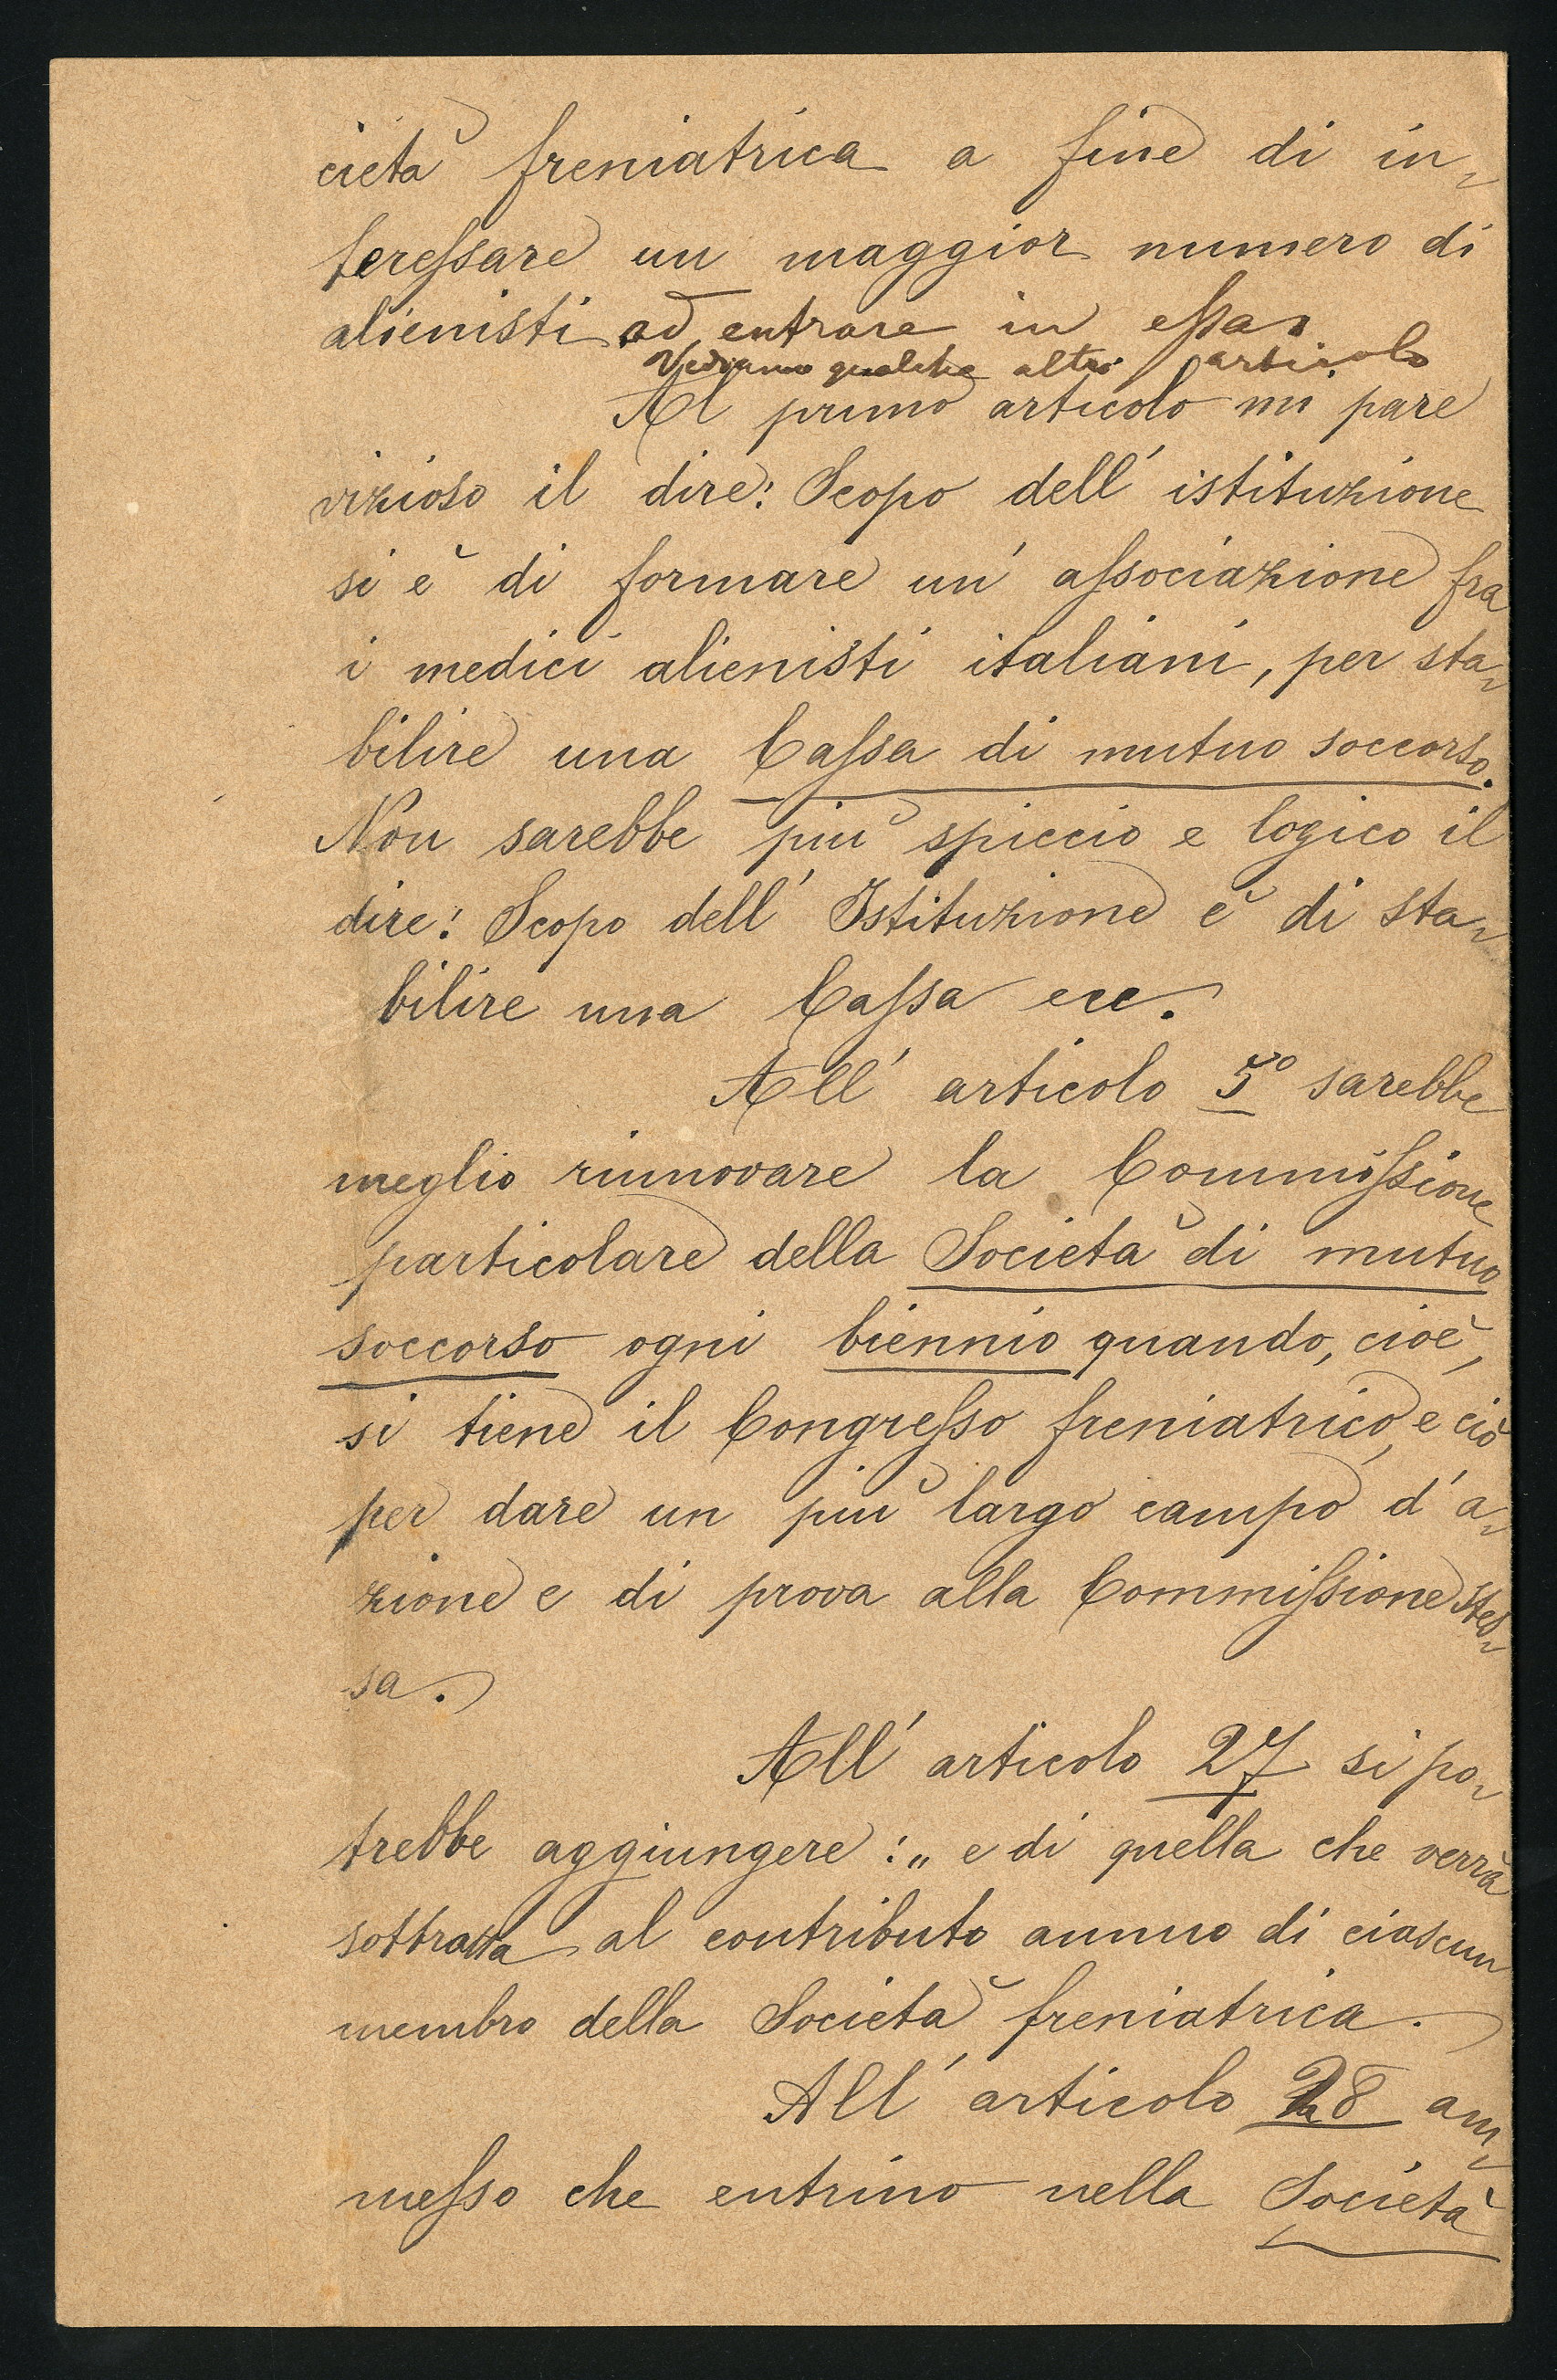 cietà freniatrica a fine di in„
teressare un maggior numero di
alienisti ad entrare in essa.
Vediamo qualche altro articolo
Al primo articolo mi pare
vizioso il dire: Scopo dell' istituzione
si è di formare un' associazione fra
i medici alienisti italiani, per sta„
bilire una Cassa di mutuo soccorso.
Non sarebbe più spiccio e logico il
dire: Scopo dell' Istituzione è di sta„
bilire una Cassa ecc.
All' articolo 5º sarebbe
meglio rinnovare la Commissione
particolare della Società di mutuo
soccorso ogni biennio quando, cioè,
si tiene il Congresso freniatrico, e ciò
per dare un più largo campo d' a„
zione e di prova alla Commissione stes„
sa.
All' articolo 27 si po„
trebbe aggiungere: „ e di quella che verrà
sottratta al contributo annuo di ciascun
membro della Società freniatrica.
All' articolo 28 am„
messo che entrino nella Società